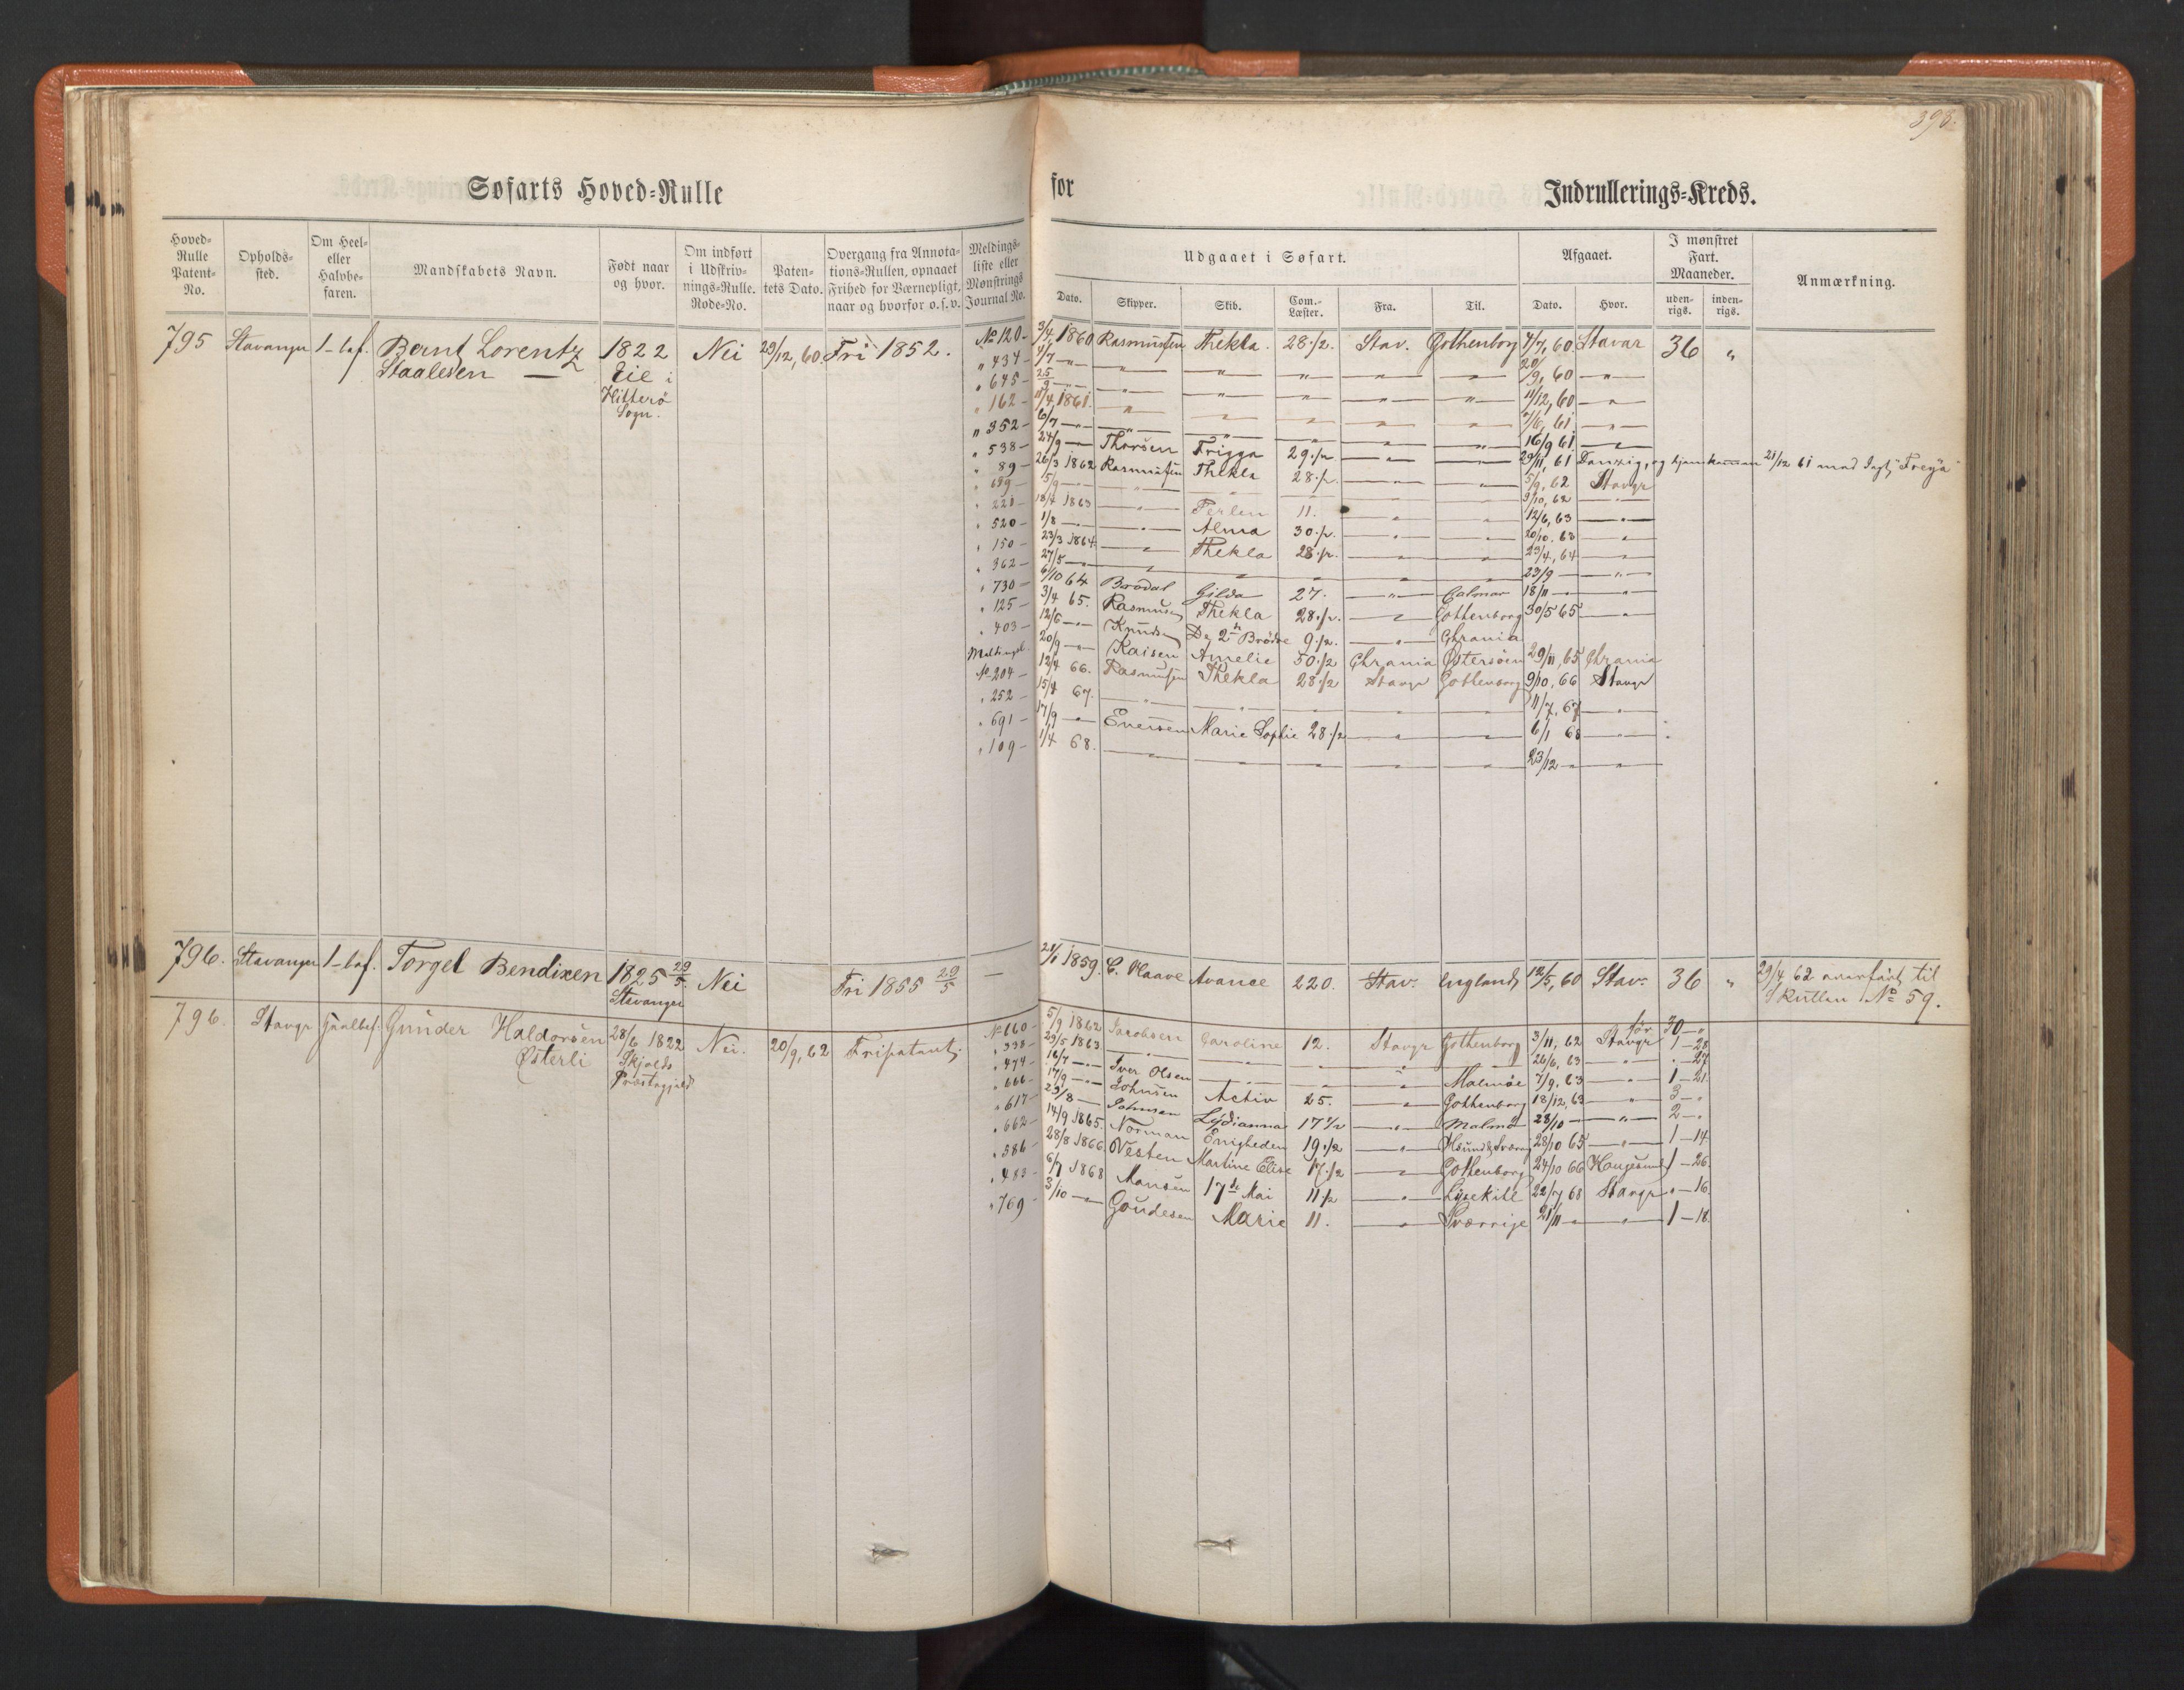 393.
Søfarts Hoved=Rulle for Indrullerings=Kreds.
Hoved=Rulle Patent=No.
Opholds=sted.
Om Heel= eller Halvbe=faren.
Mandskabets Navn.
Født naar og hvor.
Om indført i Udskriv=nings=Rulle. Rode=No.
Paten=tets Dato.
Overgang fra Annota=tions=Rullen, opnaaet Frihed for Værnepligt, naar og hvorfor o.s.v.
Meldings=liste eller Mønstrings Journal No.
Udgaaet i Søfart.
Dato. Skipper. Skib. Com.=Læster. Fra. Til.
Afgaaet.
Dato. Hvor.
I mønstret Fart. Maaneder.
uden=rigs. inden=rigs.
Anmærkning.
795 Stavanger 1-bef. Bernt Lorentz 1822 Nei 29/12, 60. Fri 1852.
Staalesen — Eie i
Hitterø
Sogn.
No 120- 3/4 1860 Rasmussen Thekla. 28 1/2. Stav. Gothenborg 7/7, 60. Stavar 36 "
" 434- 4/7 -"- -"- -"- -"- -"- -"- 20/9, 60 -"-
" 645- 25/9 -"- -"- -"- -"- -"- -"- 11/12, 60 -"-
" 162- 1861. -"- -"- -"- -"- -"- 61 -"-
" 352- 6/7 -"- -"- -"- -"- -"- -"- 16/9 61 -"-
" 538- 24/9 -"- Thorsen Frigga 29 1/2 -"- -"- 29/11, 61 Danzig, og hjemkommen 21/12 61 med Jagt "Freya"
" 89- 26/3 1862 Rasmussen Thekla 28 1/2. -"- -"- 5/9, 62 Stavgr
" 659- 5/9 -"- -"- -"- -"- -"- -"- 9/10, 62 -"-
" 221- 18/4 1863 -"- Perlen 11. -"- -"- 12/6, 63 -"-
" 520- 1/8 -"- -"- Alma 30 1/2. -"- -"- 20/10. 63 -"-
" 150- 23/3 1864. -"- Thekla 28 1/2. -"- -"- 23/4, 64 -"-
" 362- 27/5 -"- -"- -"- -"- -"- -"- 23/9 -"- -"-
" 730- 6/10 64 Brodal Gilda 27. -"- Calmar 18/11 -"- -"-
" 125- 3/4 65. Rasmusen Thekla 28 1/2. -"- Gothenborg 30/5 65 -"-
" 403- 12/6 -"- Knudsen De 2de Brødre 9 1/2. -"- Chrania
Meldingsl. 20/9 -"- Kaisen Amelie 50 1/2 Chrania Østersøen 29/11, 65 Chrania
No 204- 12/4 66. Rasmussen Thekla 28 1/2 Stavgr Gothenborg 9/10, 66 Stavgr
" 252- 15/4 67. -"- -"- -"- -"- -"- 11/7, 67 -"-
" 691- 17/9 -"- Enersen Marie Sophie 28 1/2 -"- -"- 6/1 68 -"-
" 109- 1/4 68. -"- -"- -"- -"- -"- 23/12 -"- -"-
796. Stavanger 1-bef. Torgel Bendixen 1825 29/5. Nei Fri 1855 29/5 — 1859. C. Kaave Avance 220. Stav. England 12/5, 60 Stav. 36 " 29/4 62 overført til
Stavanger Rullen No 59.
796. Stavgr Heelbef. Gunder Haldorsen 28/6 1822 Nei. 20/9, 62 Fripatent
Østerli Skjolds
Præstegjeld
før 30-"
No 660- 5/9 1862 Jacobsen Caroline 12. Stavgr Gothenborg 3/11, 62 Stavgr 1-28
" 338- 29/5 1863. -"- -"- -"- -"- -"- 26/6, 63 -"- "-27
" 474- 16/7 -"- Iver Olsen -"- -"- -"- Malmøe 7/9, 63 -"- 1-21.
" 666- 17/9 -"- Johnsen Activ 25. -"- Gothenborg 18/12, 63 -"- 3-"
" 617- 23/8 -"- Johnsen Lydianna 17 1/2 -"- Malmø 28/10 -"- -"- 2-"
" 662- 14/9 1865. Norman Enigheden 19 1/2 -"- 28/10 65 -"- 1-14
" 586- 28/8 1866. Nesten Martine Elise 17 1/2 -"- Gothenborg 24/10 66 Haugesund 1-26.
" 483- 6/7 1868 Mansen 17de Mai 11 1/2 -"- Lysekill 22/7 68 Stavgr "-16.
" 769- 3/10 -"- Goudesen Marie 11. -"- Sværrige 21/11 -"- -"- 1-18.